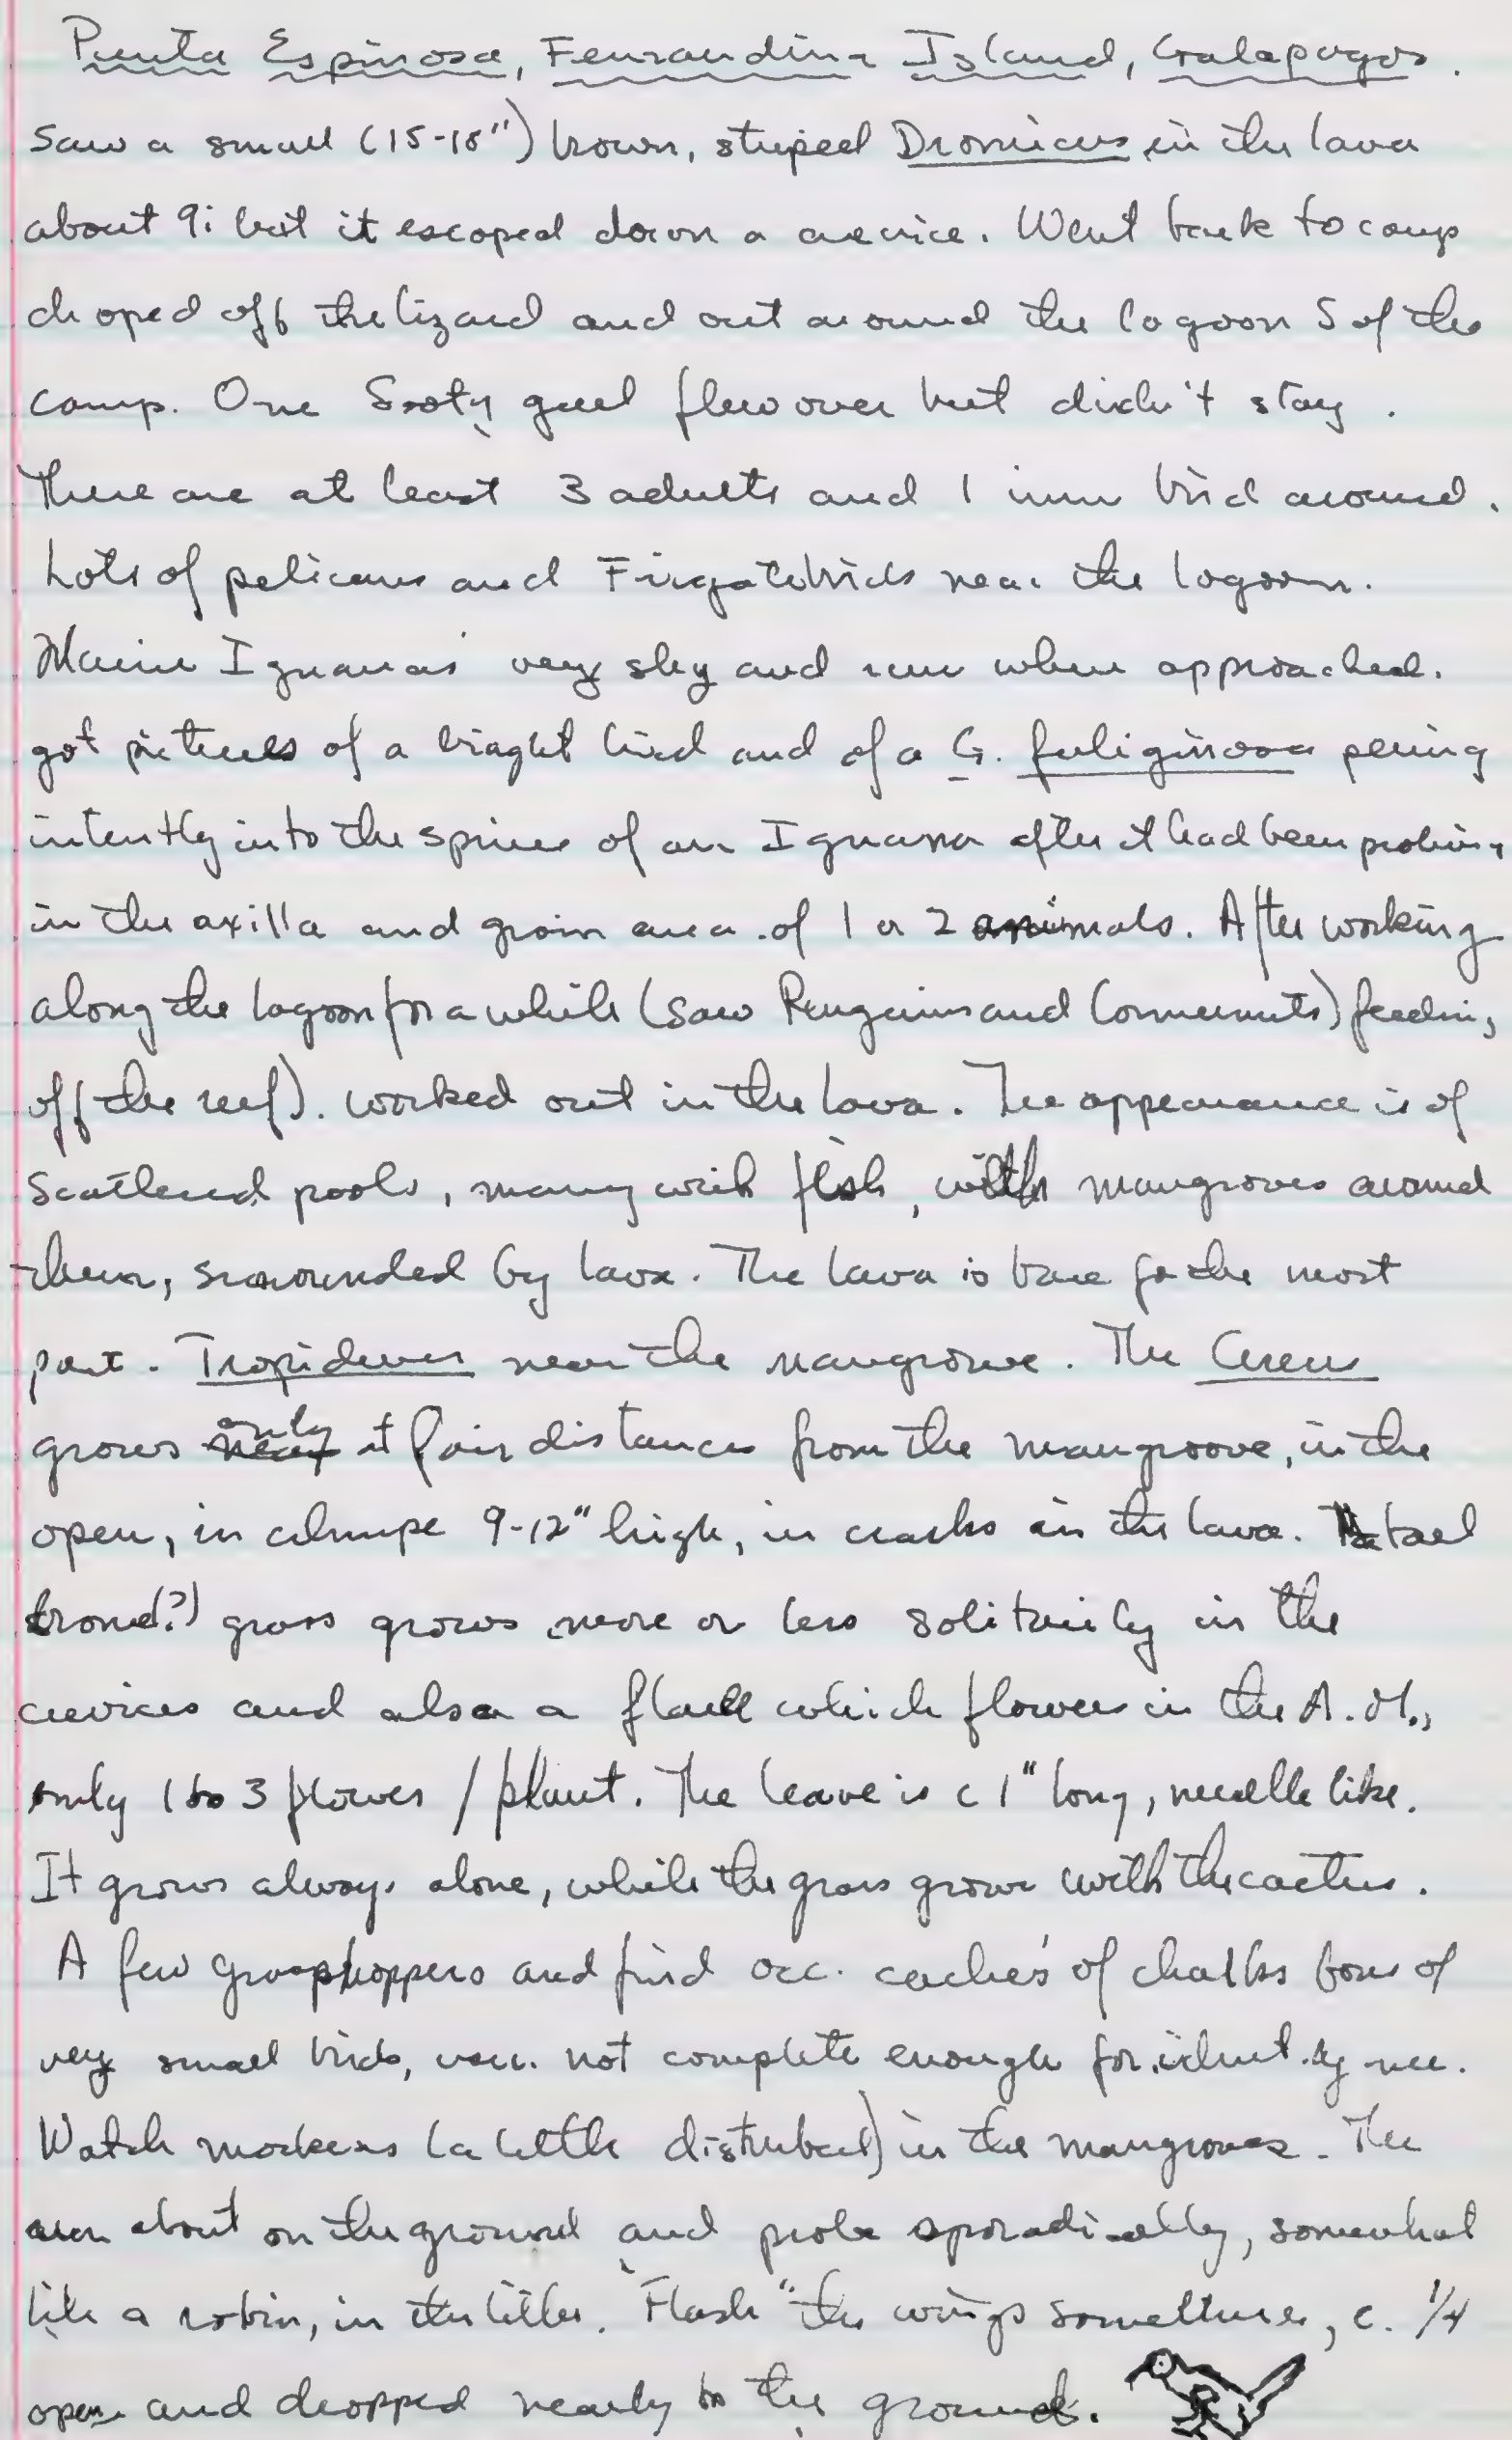 Punta Espinosa, Fernandina Island, Galapagos.
Saw a small (15-18") brown, striped Dromicus in the lava
about 9; but it escaped down a crevice. Went back to camp
droped off the lizard and out around the lagoon S of the
camp. One Sooty gull flew over but didn't stay.
There are at least 3 adults and 1 imm bird around.
Lots of pelicans and Frigatebirds near the lagoon.
Marine Iguanas very shy and run when approached.
got pictures of a bright bird and of a G. fuliginosa peering
intently into the spines of an Iguana after it had been probing
in the axilla and groin area of 1 or 2 animals. After working
along the lagoon for a while (saw Penguins and Cormorants) feeding
off the reef). worked out in the lava. The appearance is of
scattered pools, many with fish, with mangroves around
them, surrounded by lava. The lava is bare for the most
part. Tropidurus near the mangrove. The Cereus
grows only at fair distances from the mangroove, in the
open, in clumps 9-12" high, in cracks in the lava. The tall
brome(?) grass grows more or less solitarily in the
crevices and also a which flowers in the A.M.,
only 1 to 3 flowers / plant. The leave is c 1" long, needle like.
It grows always alone, while the grass grows with the cactus.
A few grasphoppers and find occ. caches of bones of
very small birds, usu. not complete enough for ident. by me.
Watch mockers (a little disturbed) in the mangroves. The
run about on the ground and probe sporadically, somewhat
like a robin, in the litter. "Flash" the wings sometimes, c. 1/4
open and dropped nearly to the ground.